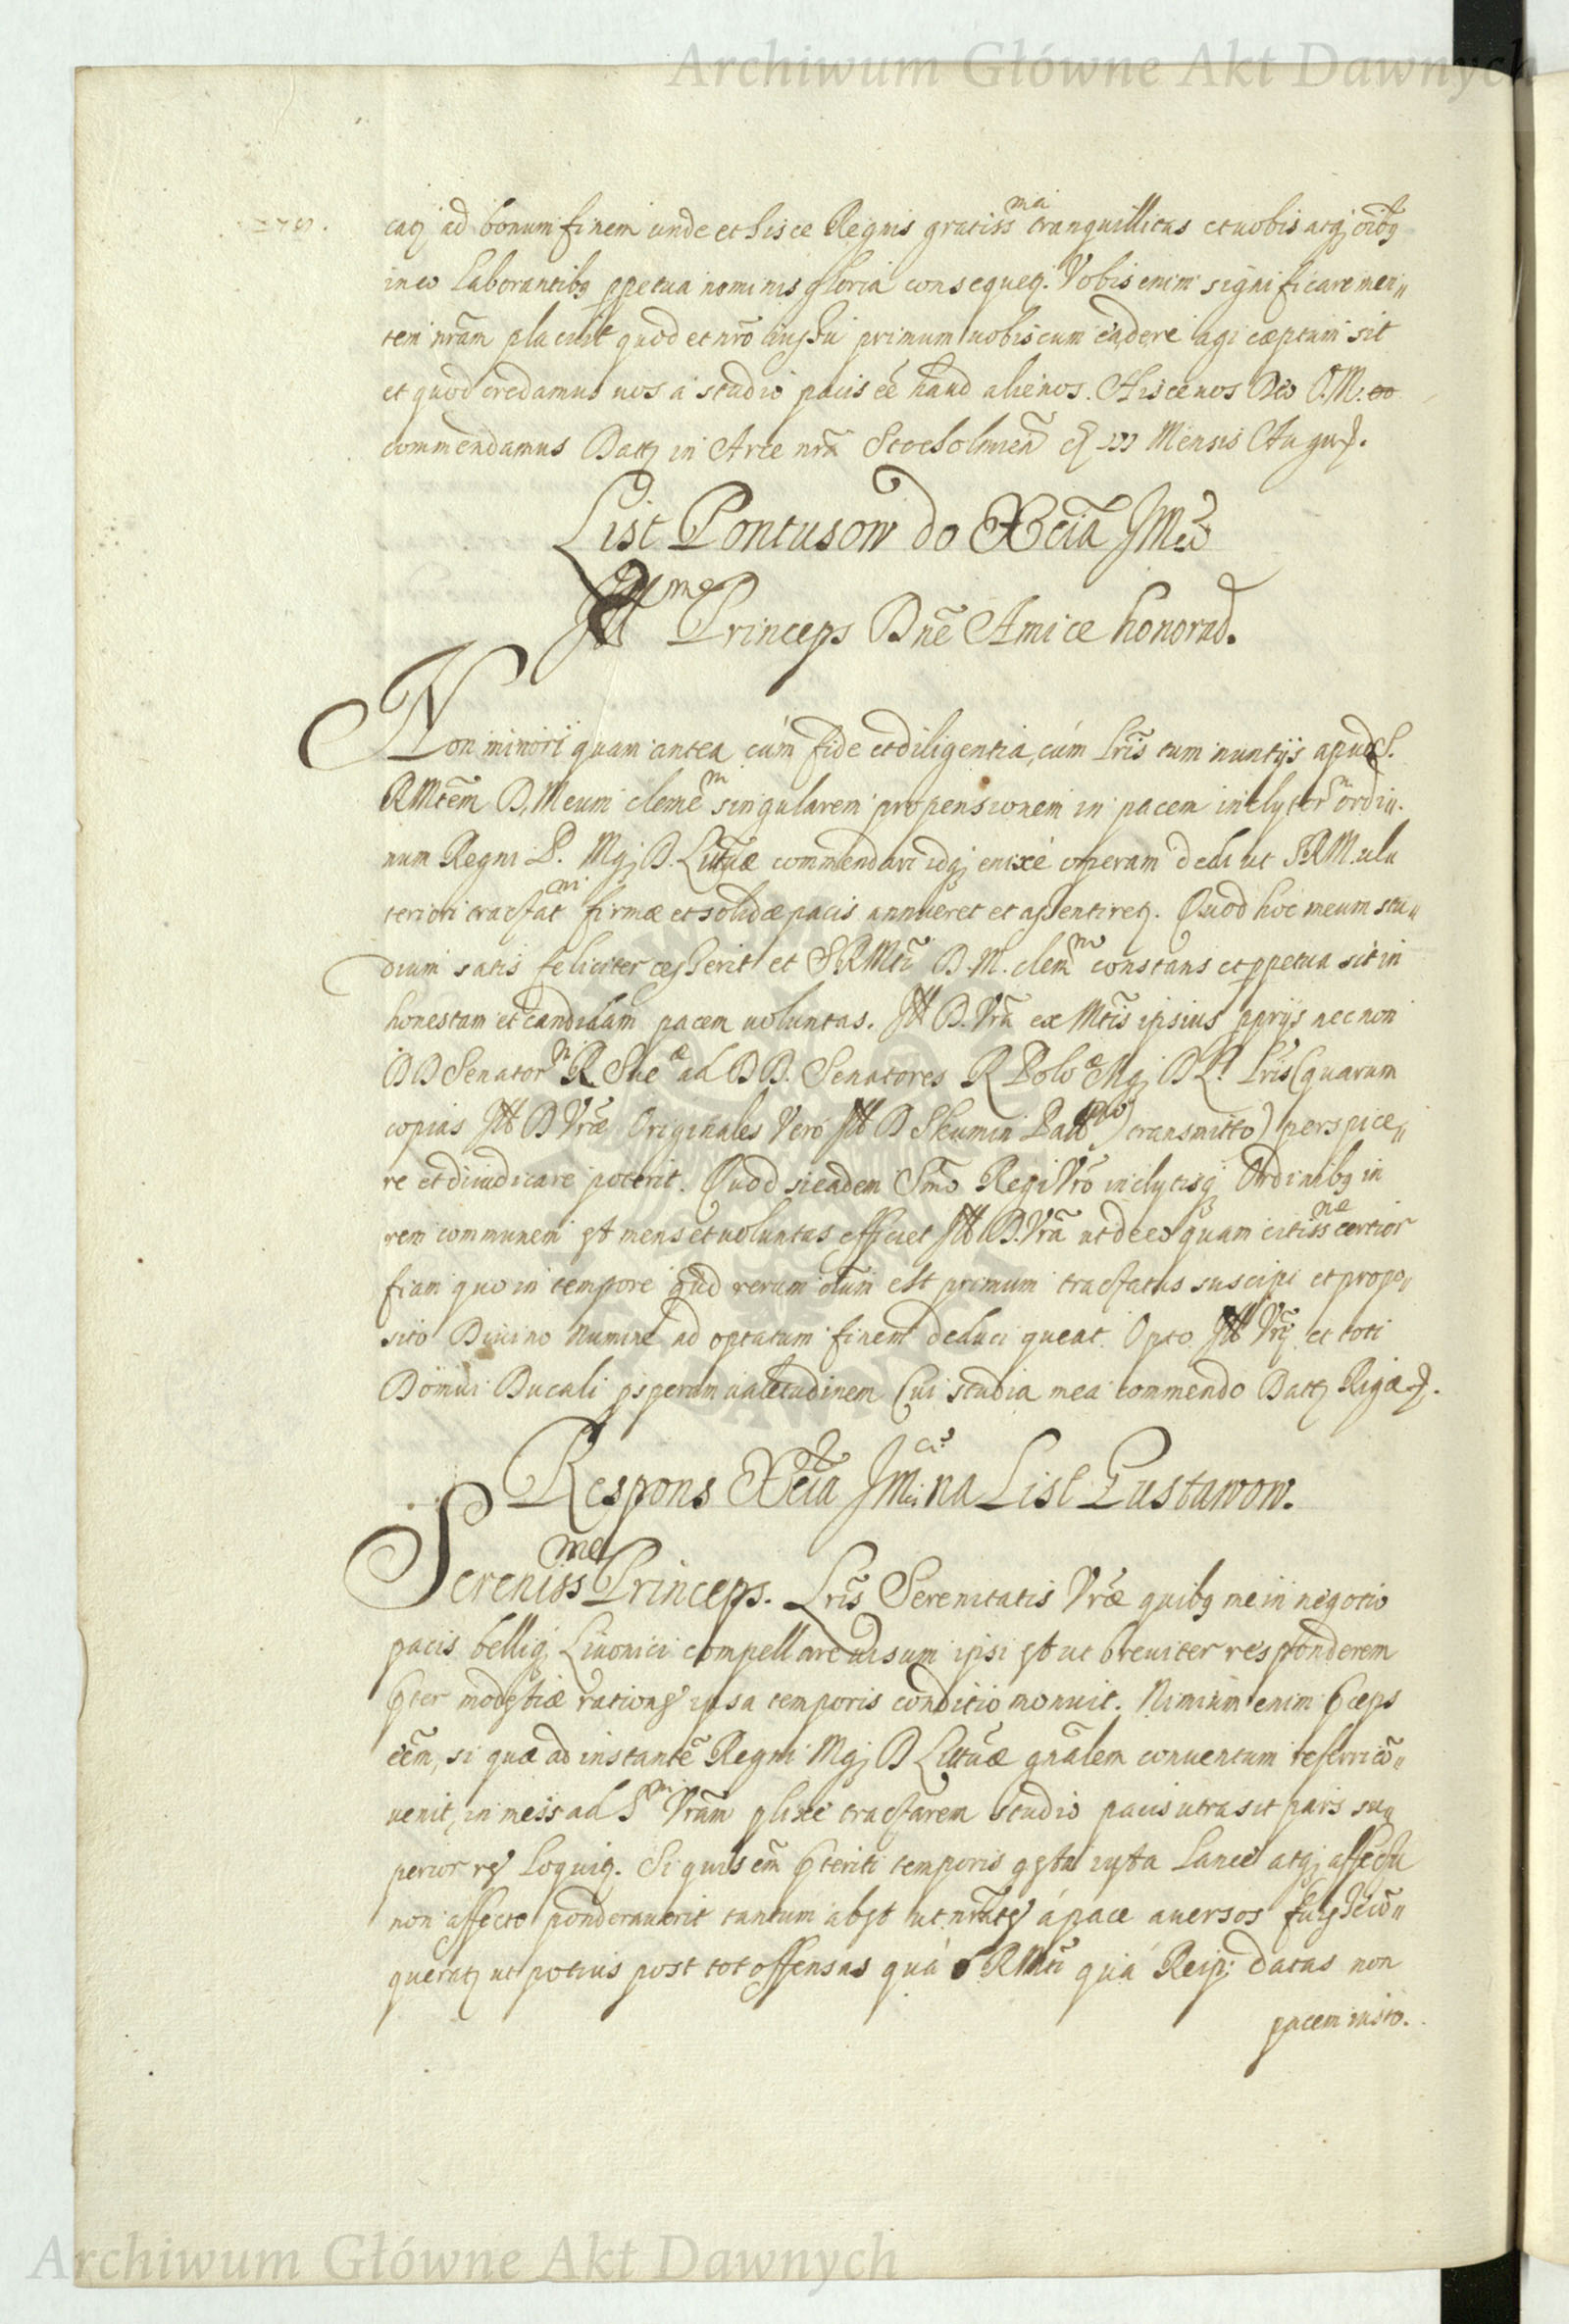 Archiwum Główne Akt Dawnych
catꝫ ad bonum finem unde et hisce Regnis gratiss^ma tranquillitas et uobis atqꝫ oĩbꝫ
in eo laborantibꝫ ꝑpetua nominis gloria consequetꝫ. Vobis enim significare men„
tem nrãm placuit quod et nrõ iussu primum uobiscum eã de re agi cæptum sit
et quod credamus uos a studio pacis eẽ haud alienos. Hisce uos Deo O.M.
commendamus Dattꝫ in Arce nrã Stocholmieñ Mensis Augusti.
List Pontusow do Xcia JMci
Ill^me Princeps Dnẽ Amice honorad.
Non minori quam antea cúm fide et diligentia, cúm lrĩs tum nuntijs apud S.
RMtẽm D. Meum cleme^m singularem propensionem in pacem inclytor^m ordi„
num Regni P. Mgꝫ D. Littuæ commendaui idqꝫ enixé operam dedi ut SRM. ulu
teriori tractat^ni firmæ et solidæ pacis annueret et assentiretꝫ. Quod hoc meum stu„
dium satis feliciter cesserit et SRMtĩ D. M. clem^mo constans et ꝑpetua sit in
honestam et candidam pacem uoluntas. Ill D. Vrã ex Mtĩs ipsius ꝓprijs nec non
DD Senator^m R Sue^æ ad DD. Senatores R Polo^æ Mgꝫ D L. lrĩs (quarum
copias Ill D Vræ Originales Vero Ill D Skumin Palt^no transmitto) perspice„
re et diiudicare poterit. Quod si eadem Sm̃o Regi Vrõ inclytisqꝫ Ordinibꝫ in
rem communem est mens et uoluntas efficiet Ill D. Vrã ut de eo quam citiss^me certior
fiam quo in tempore qũd rerum oĩum est primum tractatus suscipi et propo„
sito Diuino Numine ad optatum finem deduci queat. Opto Ill Vrẽ et toti
Domui Ducali ꝓsperam ualetudinem Cui studia mea commendo Dattꝫ Rigæ.
Respons Xcia JMci na List Gustawow.
Sereniss^me Princeps. Lrĩs Serenitatis Vræ quibꝫ me in negotio
pacis belliqꝫ Liuonici compellare uisum ipsi est ut breuiter responderem
p̃ter modestiæ rationes ipsa temporis conditio monuit. Nimium enim p̃ceps
eẽm, si quæ ad instantẽ Regni Mgꝫ D Littuæ gnãlem conuentum referri cõ„
uenit, in meis ad S^m Vrãm ꝓlixé tractarem studio pacis utra sit pars su„
perior res loquitꝫ. Si quis em̃ p̃teriti temporis gesta iusta lance atqꝫ affectu
non affecto ponderauerit tantum abest ut nrãtes á pace auersos fuisse cõ„
queratꝫ ut potius post tot offensas quá RMti quá Reipꝫ datas non
pacem iusto.
Archiwum Główne Akt Dawnych